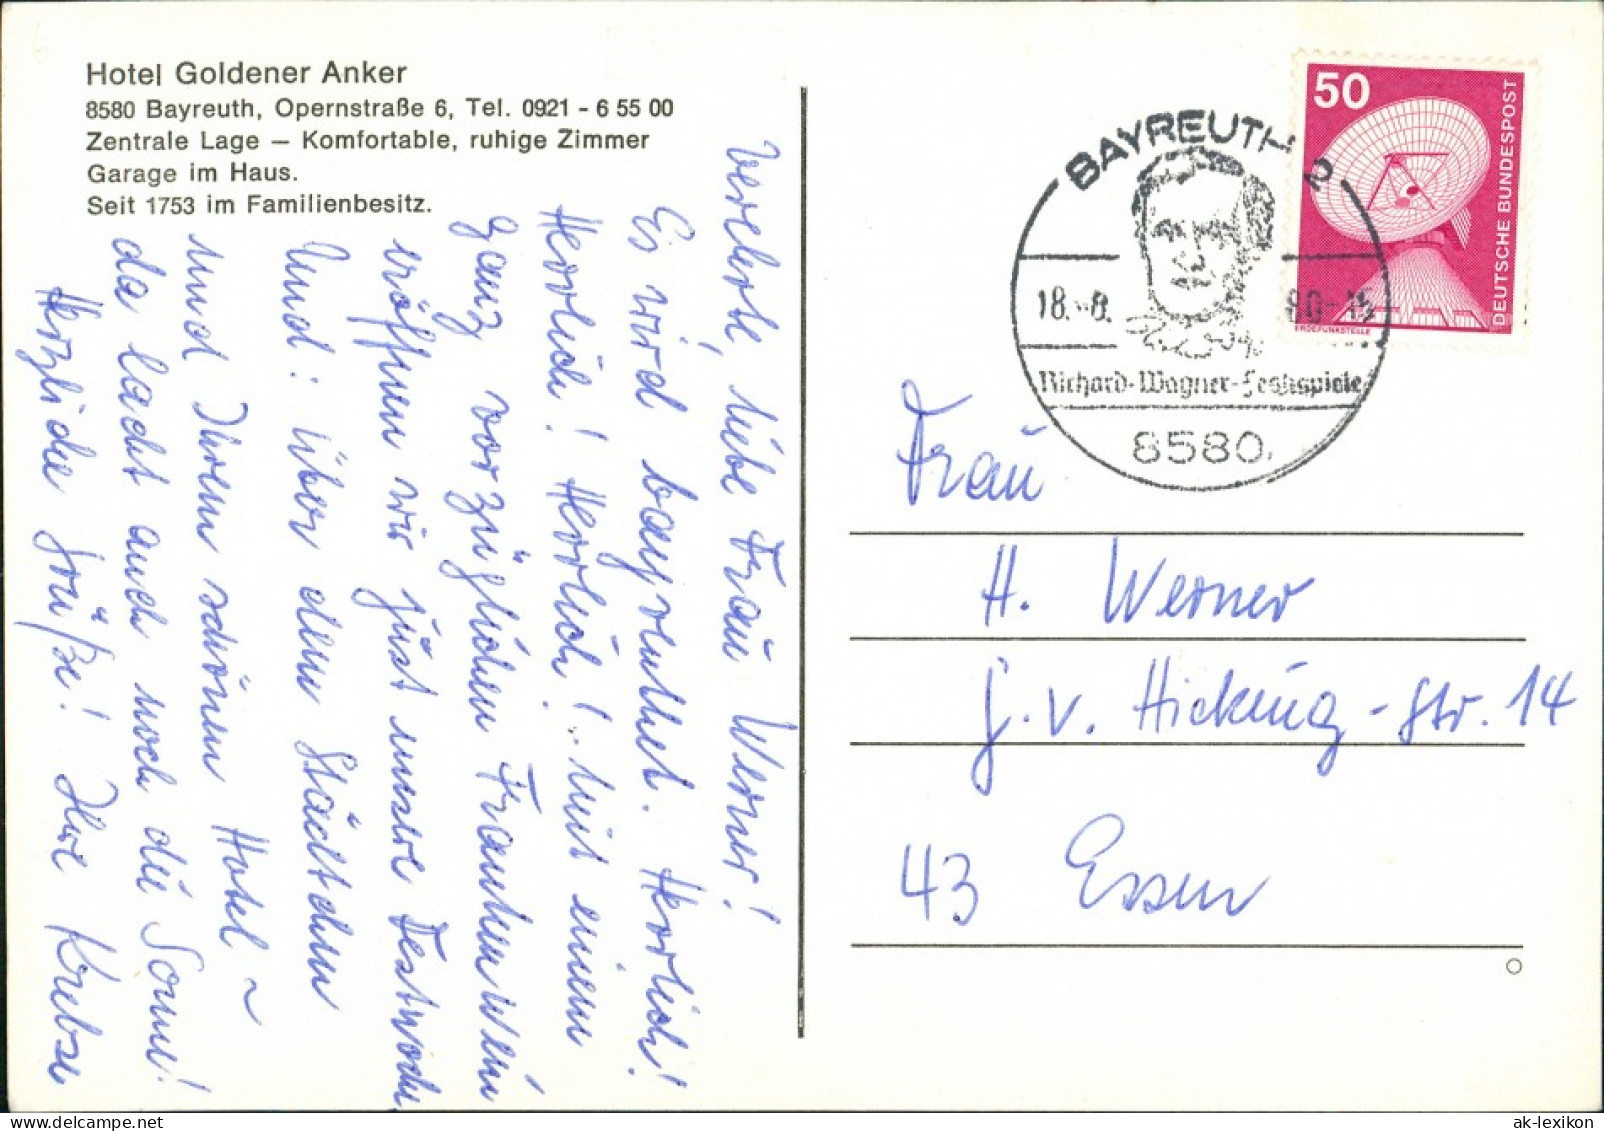 Hotel Goldener Anker
8580 Bayreuth, Opernstraße 6, Tel. 0921 - 6 55 00
Zentrale Lage — Komfortable, ruhige Zimmer
Garage im Haus.
Seit 1753 im Familienbesitz.
Verehrte, liebe Frau Werner!
Es wird bayreuthet. Herrlich!
Herrlich! Herrlich! Mit einem
ganz vorzüglichen Frankenwein
eröffnen wir just unsre Festwoche
Und: über dem Städtchen
und Ihrem schönen Hotel ~
da lacht auch noch die Sonne!
Herzliche Grüße! Ihre Krebse
BAYREUTH 2
18. -8. 80-15
Richard-Wagner-Festspiele
8580
50
DEUTSCHE BUNDESPOST
ERDEFUNKSTELLE
Frau
H. Werner
J. v. Hicking-Str. 14
43 Essen
ak-lexikon